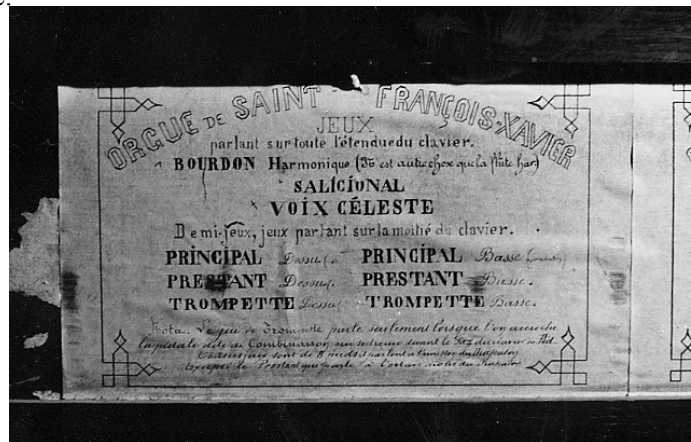 ORGUE DE SAINT FRANÇOIS-XAVIER
JEUX
parlant sur toute l'étendue du clavier.
BOURDON Harmonique ( est autre chose que la flûte har)
SALICIONAL
VOIX CÉLESTE
Demi-jeux, jeux parlant sur la moitié du clavier.
PRINCIPAL Dessus PRINCIPAL Basse
PRESTANT Dessus. PRESTANT Basse.
TROMPETTE Dessus TROMPETTE Basse.
Nota. Le jeu de trompette parle seulement lorsque l'on accroche
la pédale dite de Combinaison qui se trouve devant le
sont de 8 pieds et parlent à l'unisson du diapason
Excepté le Prestant qui parle à l'octave du diapason